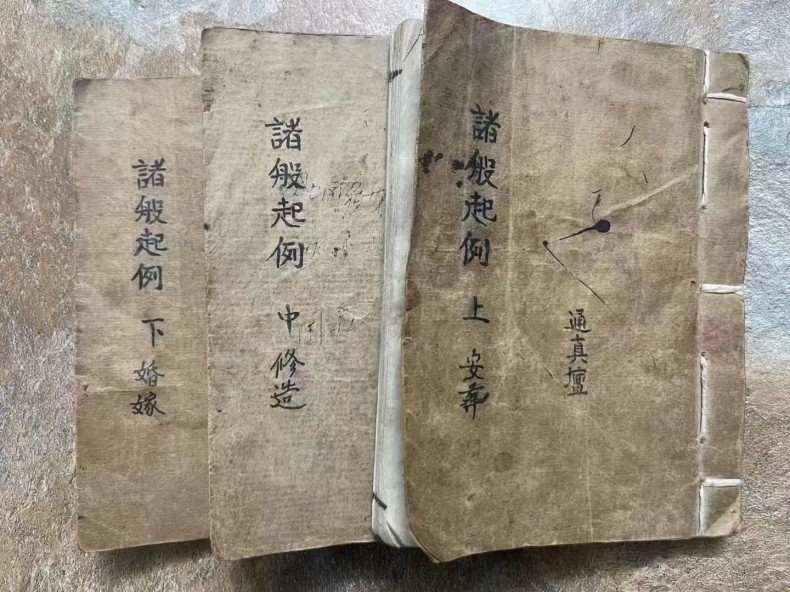 通真壇
諸般起例 上 安葬
諸般起例 中 修造
諸般起例 下 婚嫁